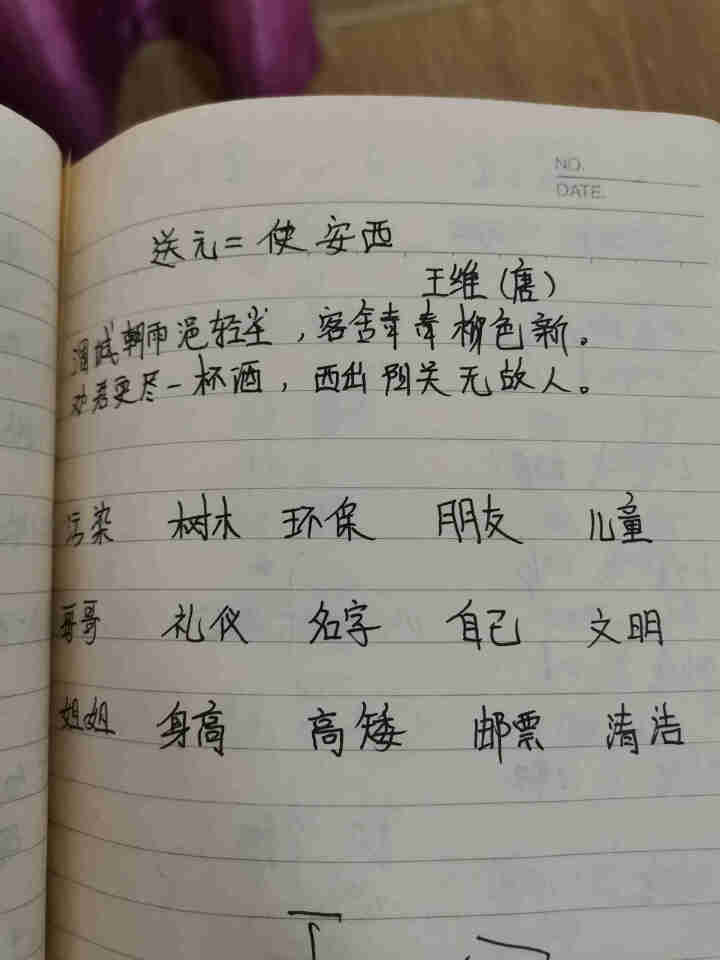 NO.
DATE.
送元二使安西
王维(唐)
渭城朝雨浥轻尘,客舍青青柳色新。
劝君更尽一杯酒,西出阳关无故人。
污染 树木 环保 朋友 儿童
哥哥 礼仪 名字 自己 文明
姐姐 身高 高矮 邮票 清洁